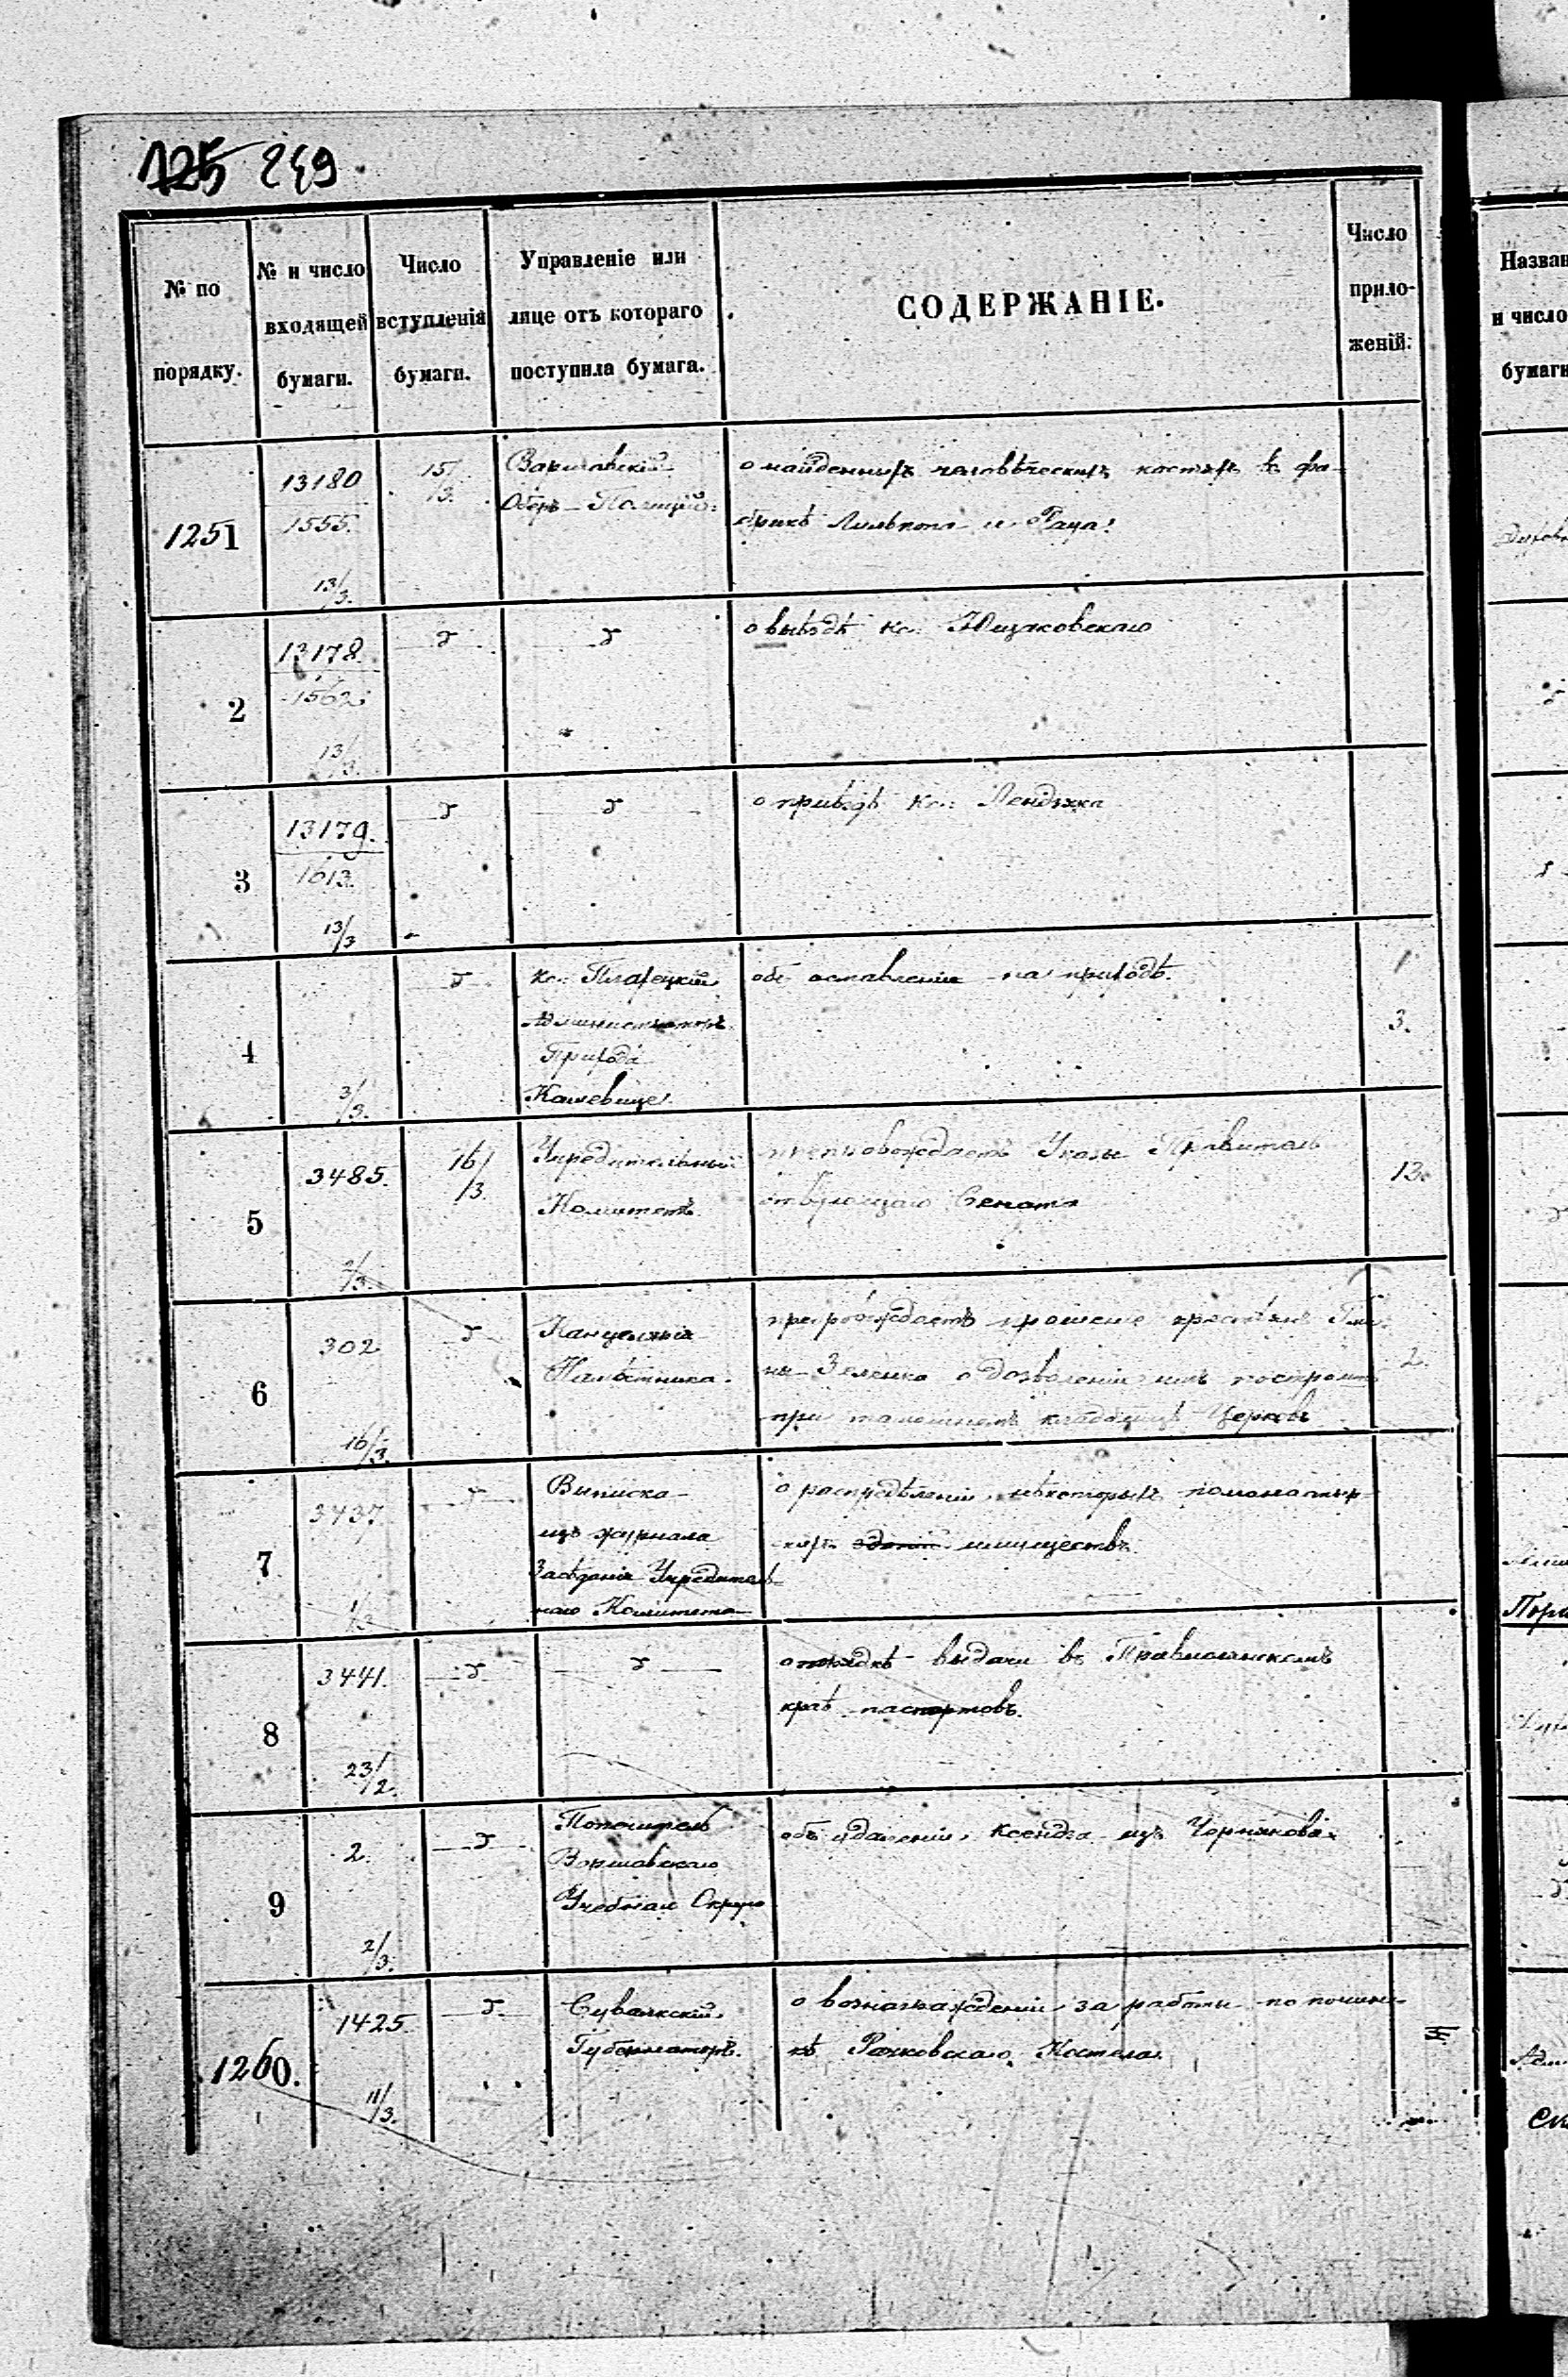 125 249
№ по
порядку.
№ и число
входящей
бумаги.
Число
вступленія
бумаги.
Управленіе или
лице отъ котораго
поступила бумага.
СОДЕРЖАНІЕ.
Число
прило-
женій.
1251
13180
1555.
13/3.
15/3.
Варшавскій
Оберъ-Полиція:
о найденныхъ человѣческихъ костяхъ въ фа-
брикѣ и Рауа:
2
13178.
1562.
13/3.
о выѣздѣ кс.
3
13179.
1613.
13/3
о приѣздѣ кс.
4
3/3.
кс.
Администраторъ
Прихода
объ оставленіи на приходѣ.
3.
5
3485.
2/3.
16/3.
Учредительный
Комитетъ
препровождаетъ Указы Правитель
ствующаго Сената
13.
6
302
16/3.
Канцелярія
Намѣстника.
прошеніе крестьянъ
Зеленко о дозволеніи имъ построить
при тамошнемъ кладбищѣ Церковь
2.
7
3437.
1/3
Выписка
изъ журнала
Засѣданія Учредитель-
наго Комитета
о распредѣленіи нѣкоторыхъ помонастыр-
скихъ зданій имуществъ.
8
3441.
23/2.
о порядкѣ выдачи въ Привислинскомъ
краѣ паспортовъ.
9
2.
2/3.
Попечитель
Варшавскаго
Учебнаго Округа
объ удаленіи ксендза изъ Чернякова.
1260.
1425.
11/3.
Сувалкскій
Губернаторъ.
о вознагражденіи за работы по почин-
кѣ Рачковскаго Костела.
Назван
и число
бумаги